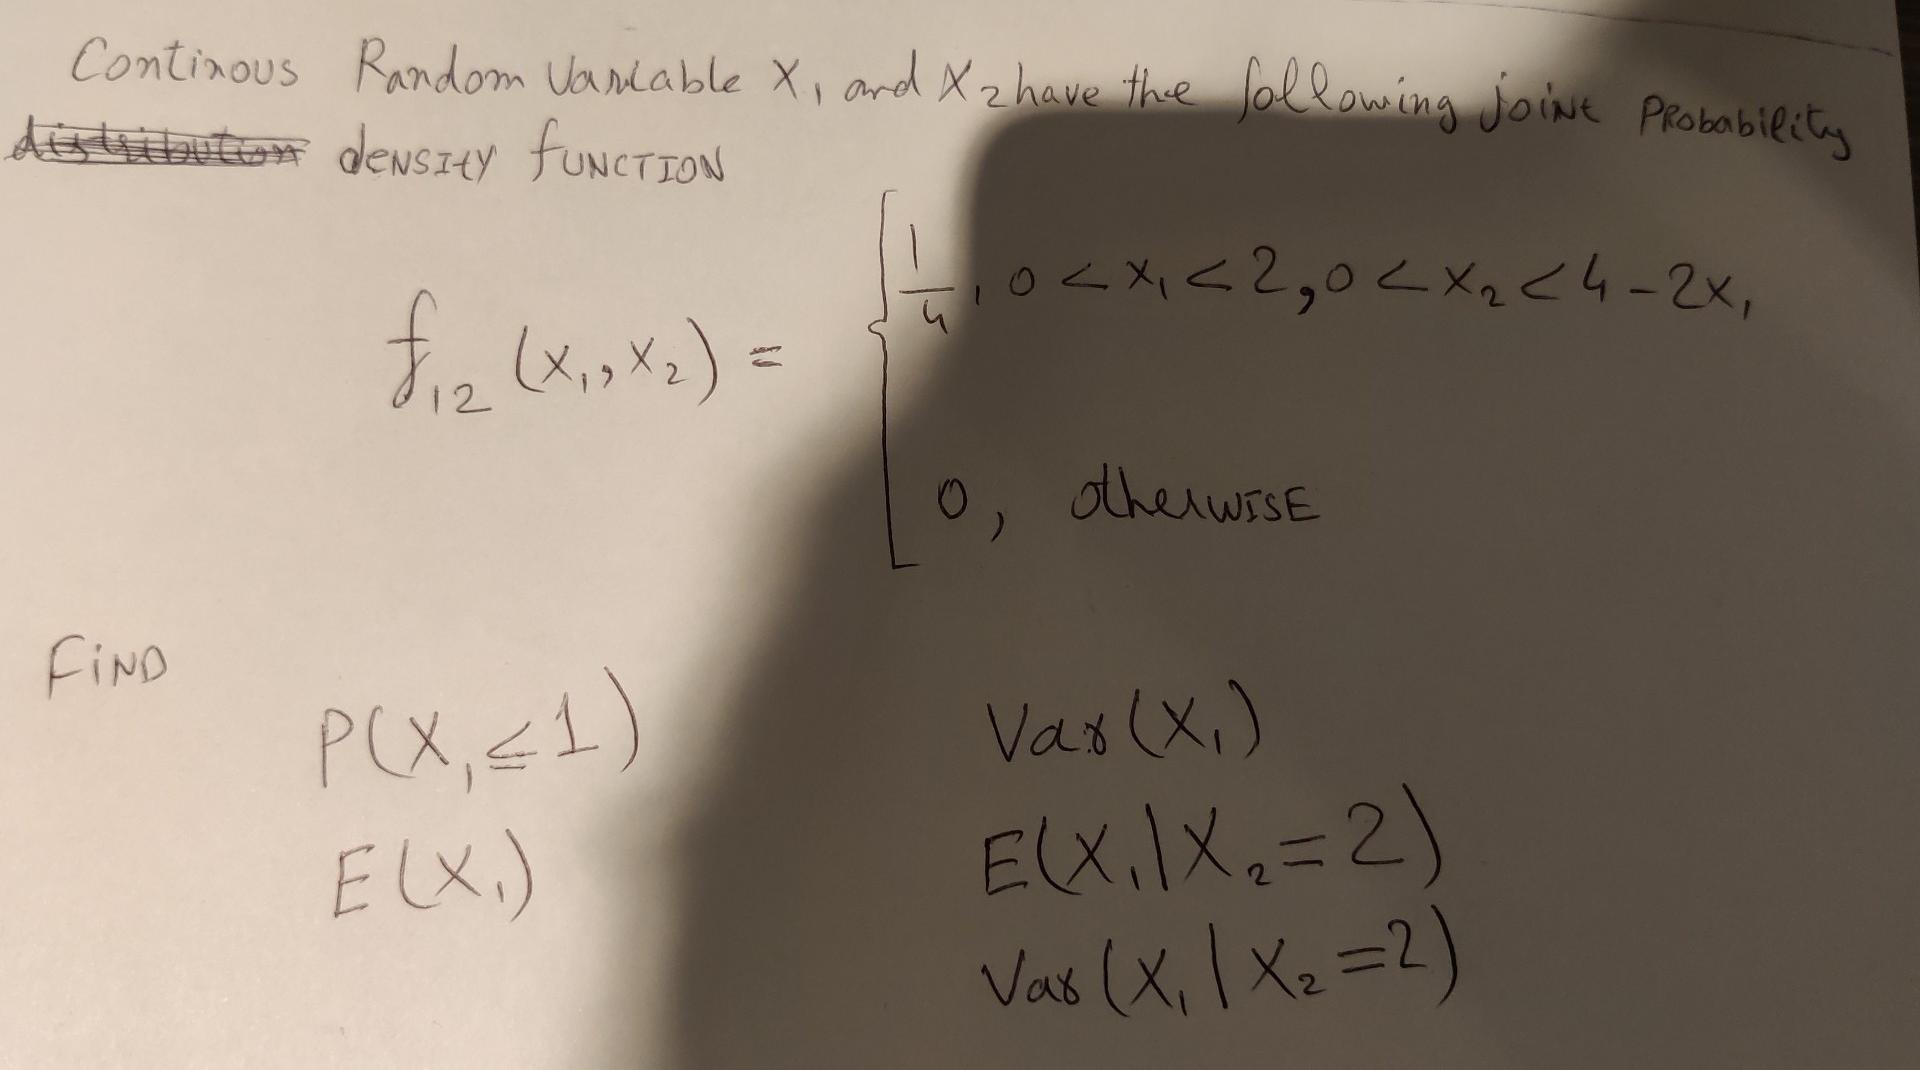 Continous Random Variable X₁ and X₂ have the following joint Probability
distribution density function
f₁₂ (x₁, x₂) = { 1/4, 0 < x₁ < 2, 0 < x₂ < 4 - 2x₁
0, otherwise
Find
P(X₁ ≤ 1) Var(X₁)
E(X₁) E(X₁|X₂ = 2)
Var(X₁|X₂ = 2)